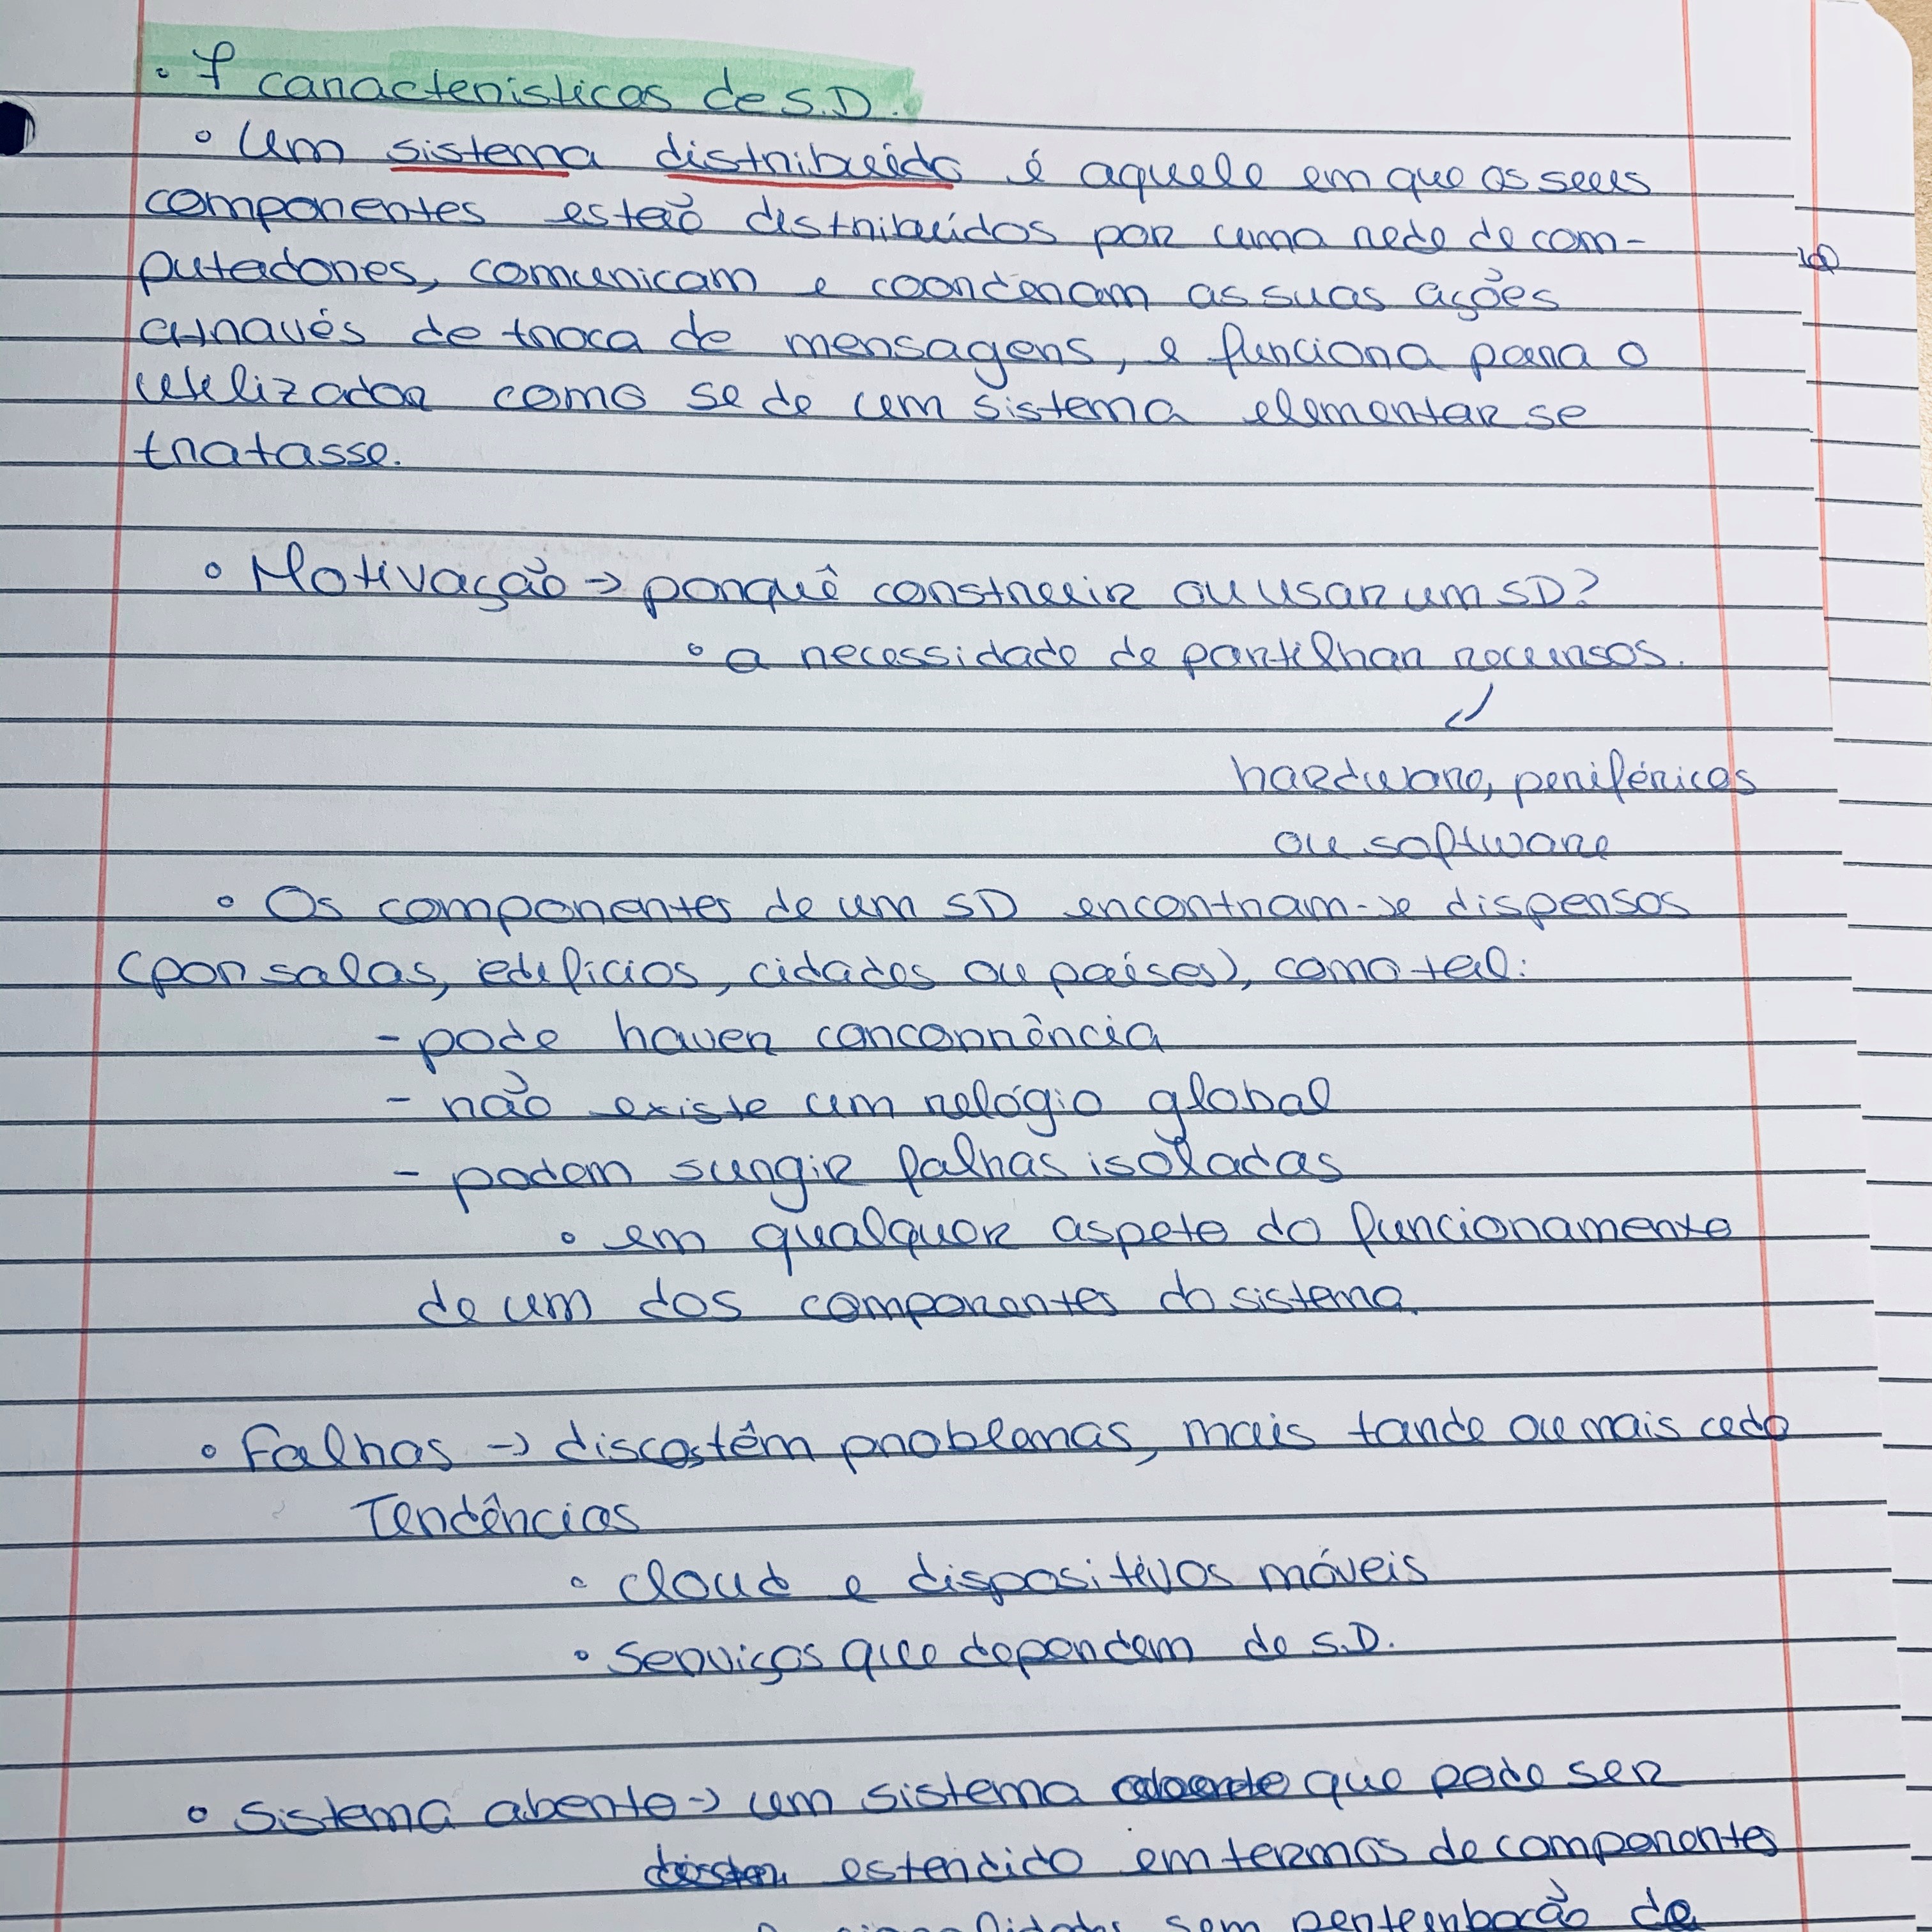 • 7 características de S.D.
◦ Um sistema distribuído é aquele em que os seus
componentes estão distribuídos por uma rede de com-
putadores, comunicam e coordenam as suas ações
através de troca de mensagens, e funciona para o
utilizador como se de um sistema elementar se
tratasse.
◦ Motivação → porquê construir ou usar um SD?
◦ a necessidade de partilhar recursos.
hardware, periféricos
ou software
◦ Os componentes de um SD encontram-se dispersos
(por salas, edifícios, cidades ou países), como tal:
- pode haver concorrência
- não existe um relógio global
- podem surgir falhas isoladas
◦ em qualquer aspeto do funcionamento
de um dos componentes do sistema.
◦ Falhas → discos têm problemas, mais tarde ou mais cedo
Tendências
◦ cloud e dispositivos móveis
◦ Serviços que dependem de S.D.
◦ Sistema aberto → um sistema que pode ser
estendido em termos de componentes
sem perturbação de